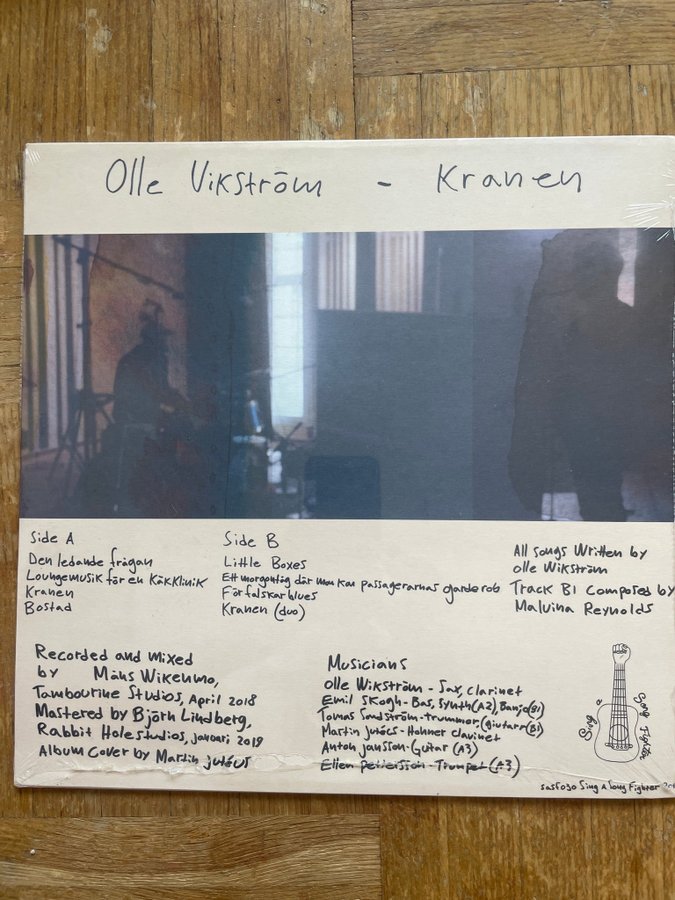 Olle Vikström - Kranen
Side A
Den ledande frågan
Loungemusik för en Käkklinik
Kranen
Bostad
Side B
Little Boxes
Ett morgontåg där man kan passagerarnas garderob
Förfalskarblues
Kranen (duo)
All songs Written by
olle Wikström
Track B1 Composed by
Malvina Reynolds
Recorded and mixed
by Måns Wikenmo,
Tambourine Studios, April 2018
Mastered by Björn Lindberg,
Rabbit Hole studios, januari 2019
Album Cover by Martin jutéus
Musicians
Olle Wikström - Sax, clarinet
Emil Skogh - Bas, Synth (A2), Banjo (B1)
Tomas Sundström - trummor, giutarr (B1)
Martin jutéus - Hohner clavinet
Anton jansson - Guitar (A3)
Ellen pettersson - Trumpet (A3)
Sing a Song Fighter
sasf030 Sing A Song Fighter